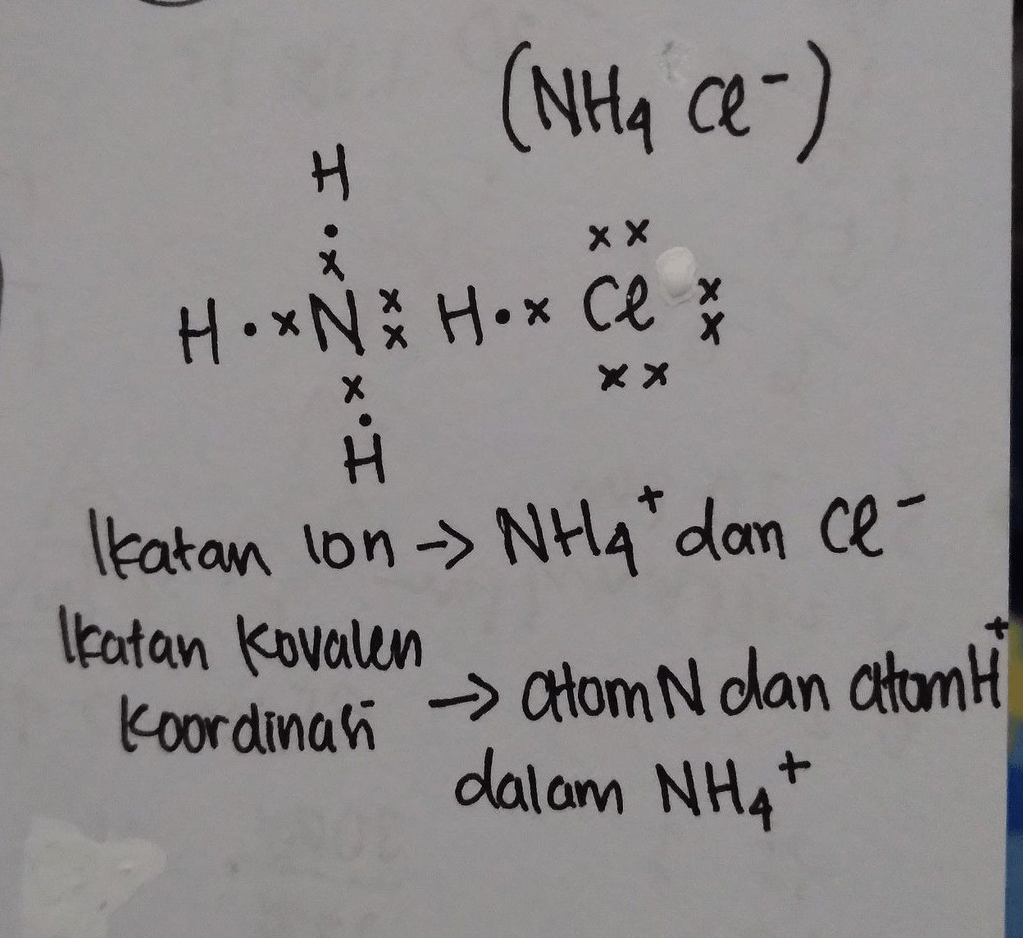 (NH4 Cl⁻)
H
•
x
H •x N xx H •x Cl xx
xx
xx
x
•
H
Ikatan Ion → NH4⁺ dan Cl⁻
Ikatan Kovalen
Koordinasi → atom N dan atom H⁺
dalam NH4⁺